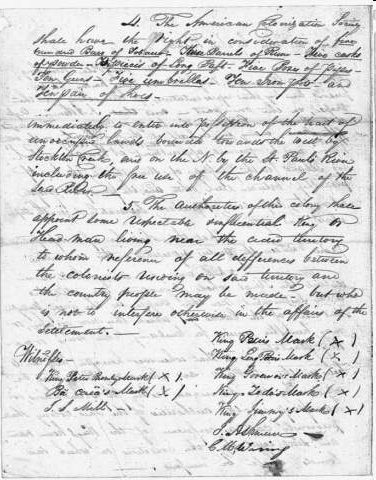 4. The American Colonization Society
shall have the right in consideration of five
hundred Bars of Tobacco Three Barrels of Rum five casks
of powder five pieces of Long Baft Three Boxes of Pipes
Ten Guns Five umbrellas Ten Iron pots and
Ten pair of Shoes
immediately to enter into possession of the tract of
unoccupied lands bounded towards the West by
Stockton Creek, and on the N. by the St. Pauls River
including the free use of the channel of the
said River.
5. The authorities of the colony shall
appoint some respectable influential King or
Head-man living near the ceded territory
to whom reference of all differences between
the colonists residing on said territory and
the country people may be made but who
is not to interfere otherwise in the affairs of the
Settlement.
King Mark (X)
King Long Mark (X)
King Governor's Mark (X)
King Mark (X)
King Jimmy's Mark (X)
J. Ashmun
C. M. Waring
Witnesses
King Peter Mark (X)
Mark (X)
Mill